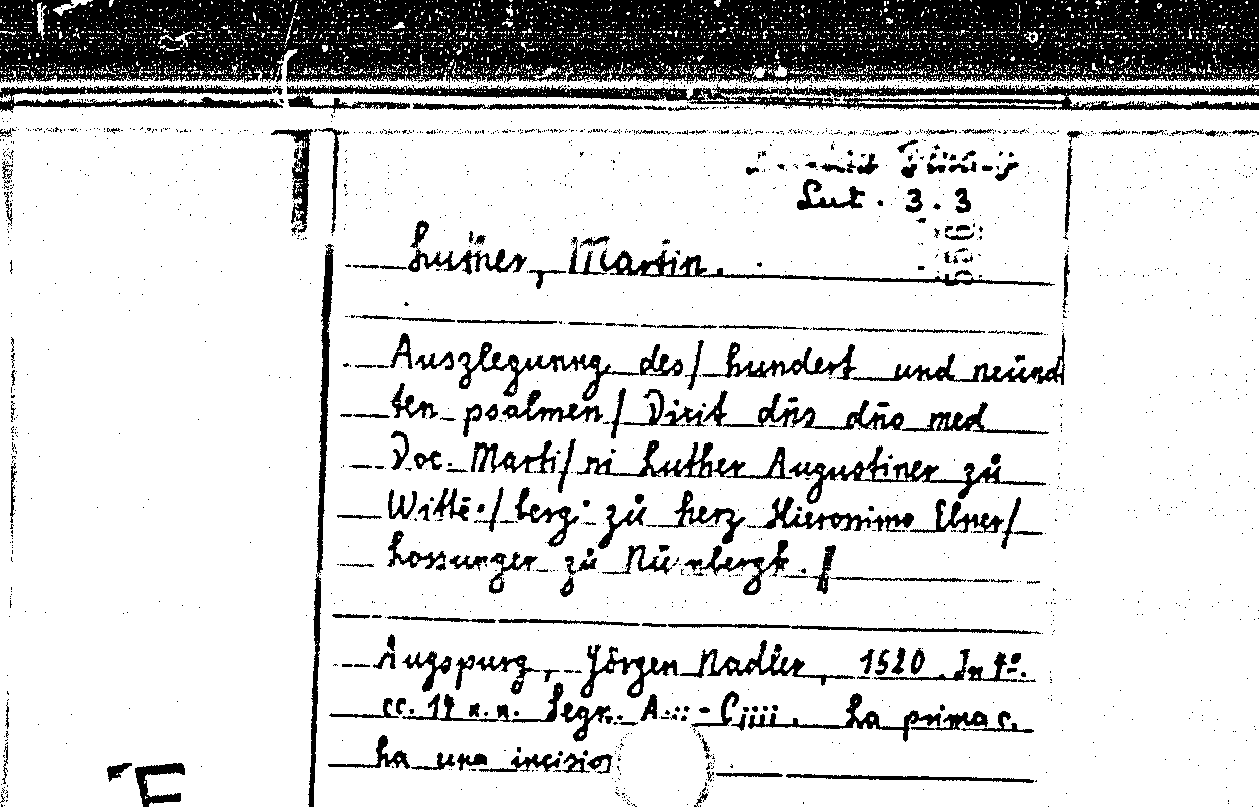 Lut. 3.3
Luther, Martin.
Auszlegunng des/ hundert und neünd
ten psalmen/ Dixit dñs dño med
Doc. Marti/ni Luther Augustiner zů
Witte-/berg zů herz Hieronimo Ebner/
Lossunger zů Nürnbergk.
Augspurg, Jörgen Nadler, 1520. In 4º.
cc. n.n. Segn. - Ciiii. La prima c.
ha una incisio
E